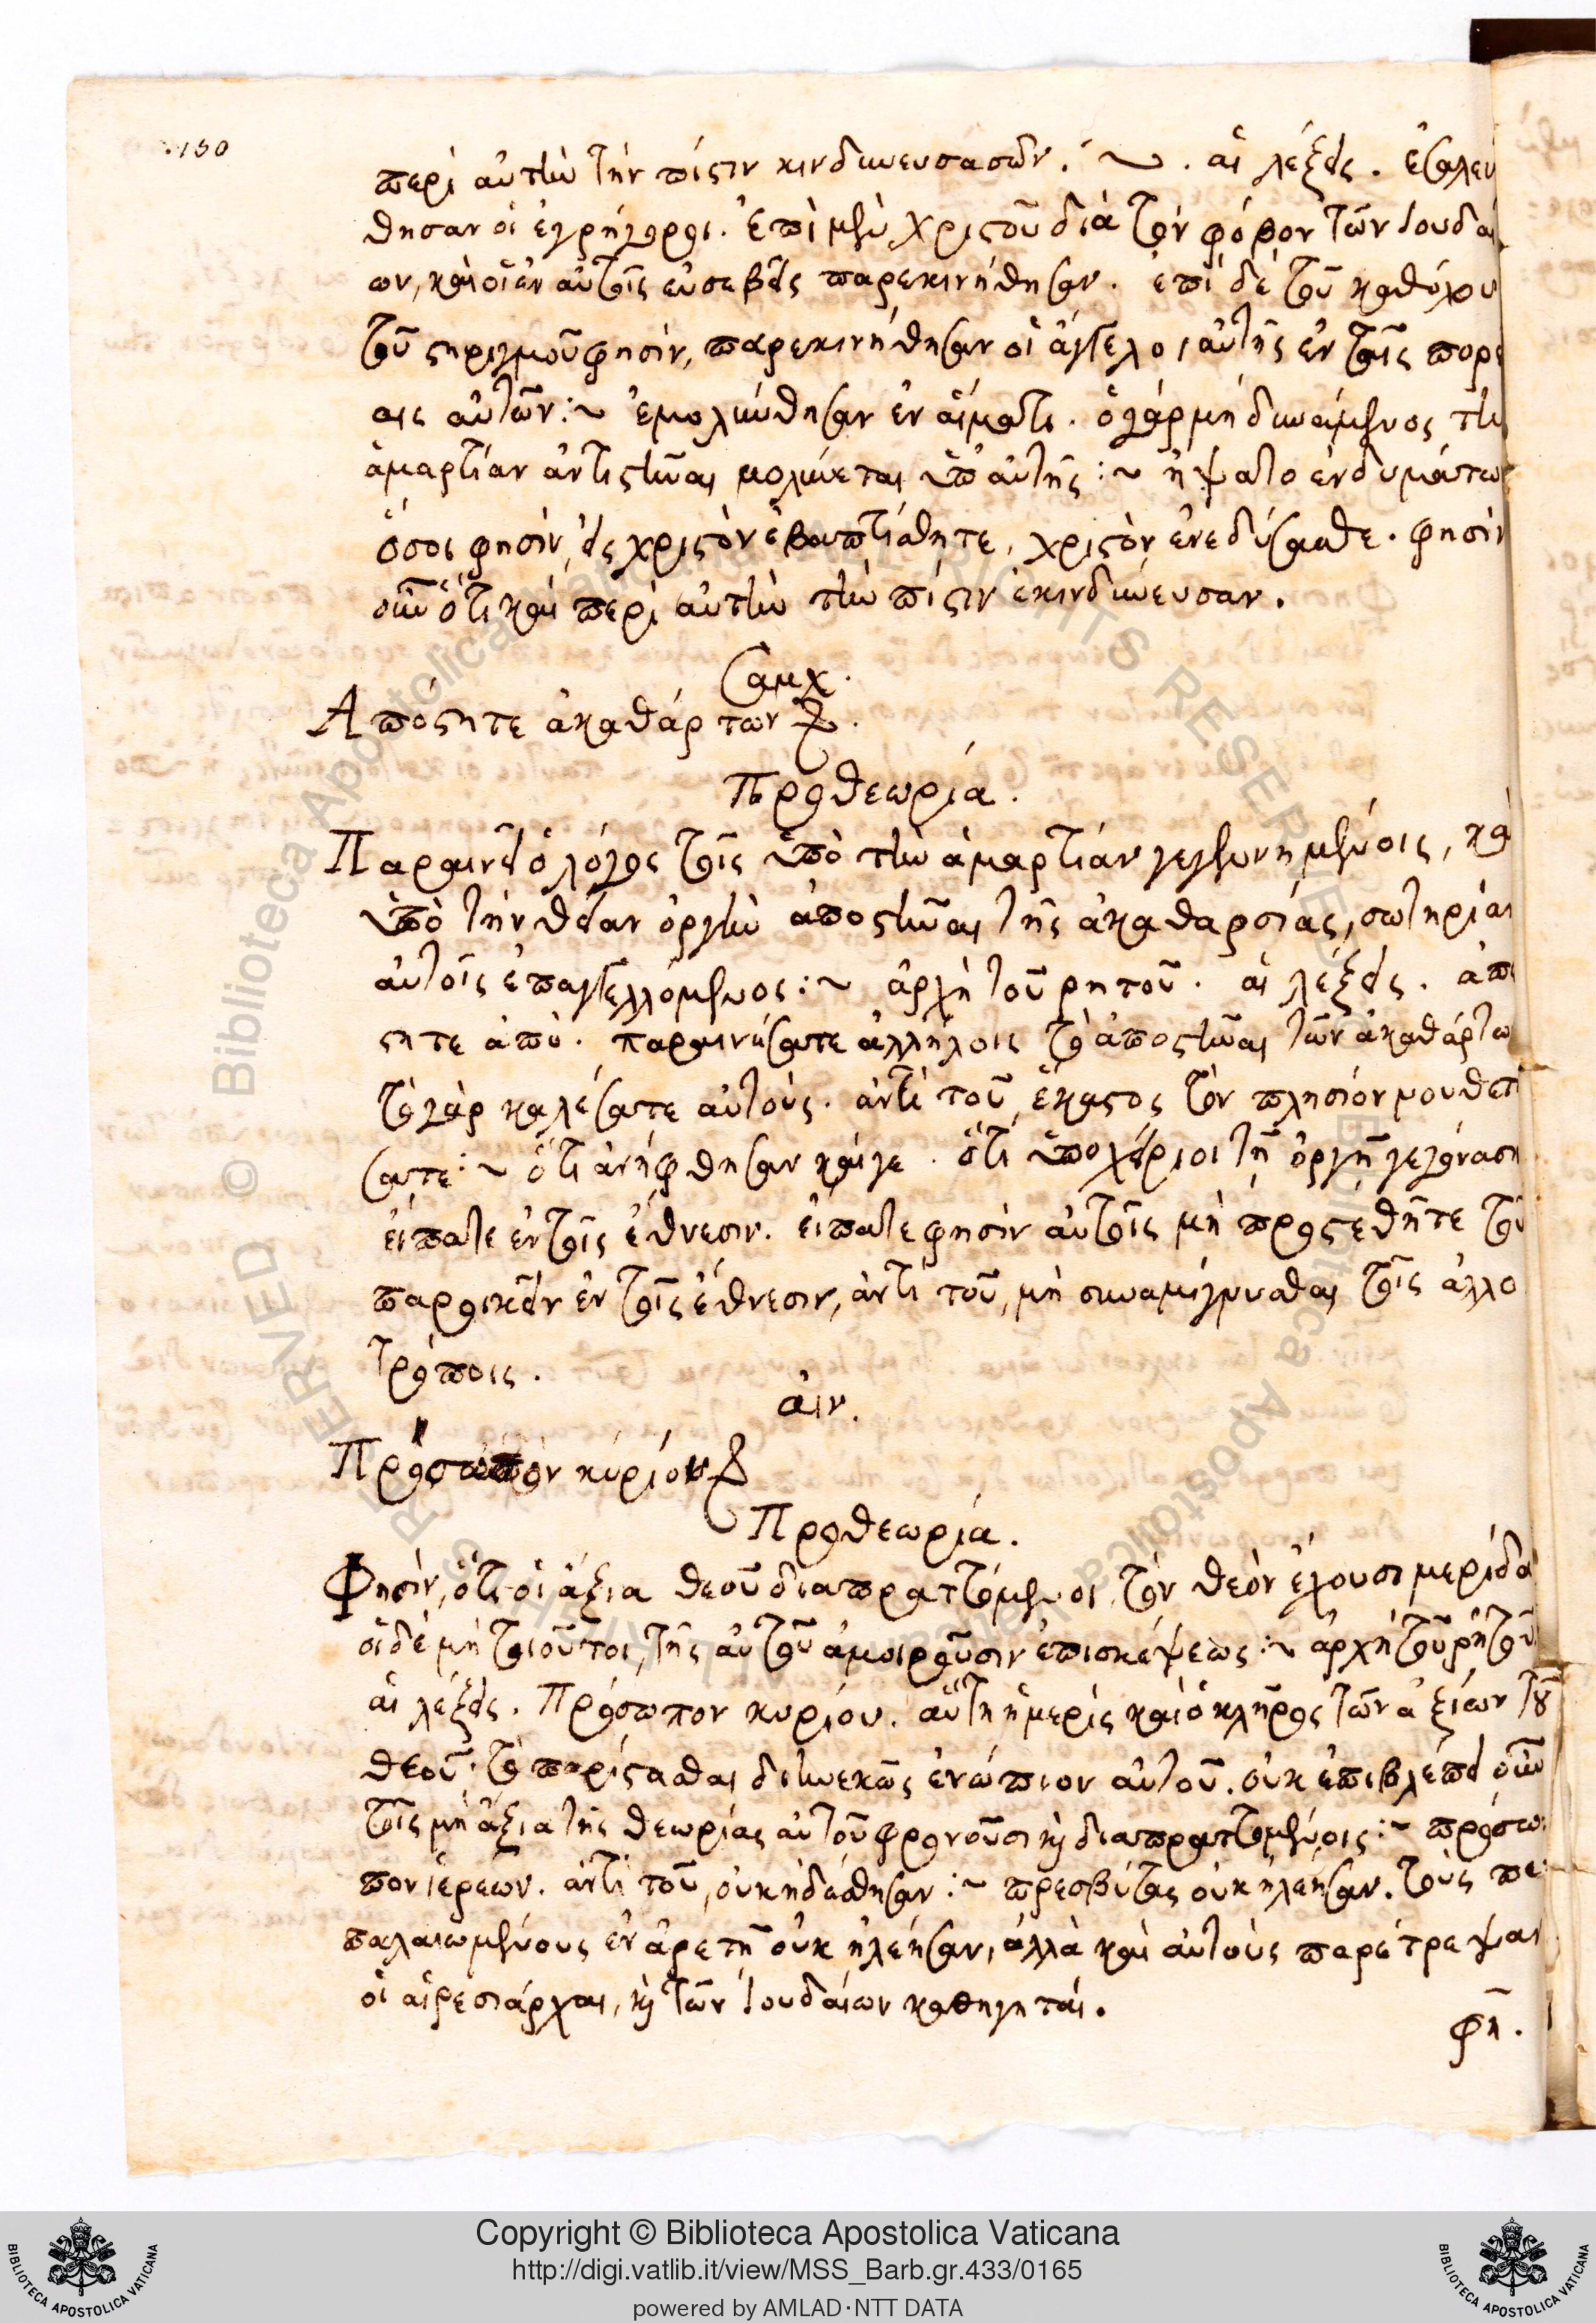 150
περὶ αὐτὴν τὴν πίστιν κινδυνευσασῶν. αἱ λέξεις. ἐσαλεύ
θησαν οἱ ἐγρήγοροι. ἐπὶ μὲν χριστοῦ διὰ τὸν φόβον τῶν ἰουδαί
ων, καὶ οἱ ἐν αὐτοῖς εὐσεβεῖς παρεκινήθησαν. ἐπὶ δὲ τοῦ καθόλου
τοῦ στηριγμοῦ φησὶν, παρεκινήθησαν οἱ ἄγγελοι αὐτῆς ἐν ταῖς πορεί
αις αὐτῶν:~ ἐμολύνθησαν ἐν αἵματι. ὁ γὰρ μὴ δυνάμενος τὴν
ἁμαρτίαν ἀντιστῆναι μολύνεται ὑπ' αὐτῆς:~ ἥψατο ἐνδυμάτων
ὅσοι φησὶν, εἰς χριστὸν ἐβαπτίσθητε, χριστὸν ἐνεδύσασθε. φησὶν
οὖν ὅτι καὶ περὶ αὐτὴν τὴν πίστιν ἐκινδύνευσαν.
Σαμχ.
Ἀπόστητε ἀκαθάρτων
Προθεωρία.
Παραινεῖ ὁ λόγος τοῖς ὑπὸ τὴν ἁμαρτίαν γεγενημένοις, καὶ
ὑπὸ τὴν θείαν ὀργὴν ἀποστῆναι τῆς ἀκαθαρσίας, σωτηρίαν
αὐτοῖς ἐπαγγελλόμενος:~ ἀρχὴ τοῦ ρητοῦ. αἱ λέξεις. ἀπό
στητε ἀπὸ. παραινέσατε ἀλλήλοις τὸ ἀποστῆναι τῶν ἀκαθάρτων
τὸ γὰρ καλέσατε αὐτοὺς. ἀντὶ τοῦ, ἕκαστος τὸν πλησίον νουθετή
σατε:~ ὅτι ἀνήφθησαν καί γε. ὅτι ὑποχείριοι τῇ ὀργῇ γεγόνασιν
εἴπατε ἐν τοῖς ἔθνεσιν. εἴπατε φησὶν αὐτοῖς μὴ προστεθῆτε τοῦ
παροικεῖν ἐν τοῖς ἔθνεσιν, ἀντὶ τοῦ, μὴ συναμίγνυσθαι τοῖς ἀλλο
τρόποις.
ἀιν.
Πρόσωπον κυρίου
Προθεωρία.
Φησὶν, ὅτι οἱ ἄξια θεοῦ διαπραττόμενοι, τὸν θεὸν ἔχουσι μερίδα
οἱ δὲ μὴ τοιοῦτοι, τῆς αὐτοῦ ἀμοιροῦσιν ἐπισκέψεως:~ ἀρχὴ τοῦ ῥητοῦ
αἱ λέξεις. Πρόσωπον κυρίου. αὕτη ἡ μερὶς καὶ ὁ κλῆρος τῶν ἀξίων τοῦ
θεοῦ. τὸ παρίστασθαι διηνεκῶς ἐνώπιον αὐτοῦ. οὐκ ἐπιβλέπει οὖν
τοῖς μὴ ἄξια τῆς θεωρίας αὐτοῦ φρονοῦσι καὶ διαπραττομένοις:~ πρόσω
πον ἱερέων. ἀντὶ τοῦ, οὐκ ᾐδέσθησαν:~ πρεσβύτας οὐκ ἠλέησαν. τοὺς πε
παλαιωμένους ἐν ἀρετῇ οὐκ ἠλέησαν, ἀλλὰ καὶ αὐτοὺς παρέτρεψαν
οἱ αἱρεσιάρχαι, καὶ τῶν ἰουδαίων καθηγηταί.
φη.
Copyright © Biblioteca Apostolica Vaticana
http://digi.vatlib.it/view/MSS_Barb.gr.433/0165
powered by AMLAD·NTT DATA